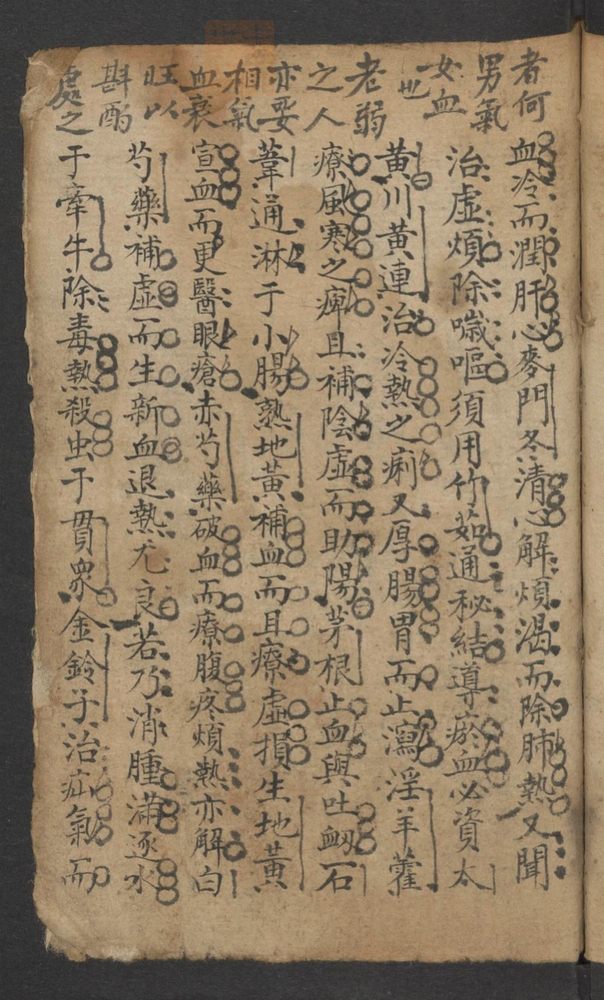 者何
男氣
女血
也
老弱
之人
亦妥
相氣
血衰
旺以
斟酌
處之
血冷而潤肝心麥門冬清心解煩渴而除肺熱又聞
治虛煩除噦嘔須用竹茹通秘結導瘀血必資太
黃川黃連治冷熱之痢又厚腸胃而止瀉淫羊藿
療風寒之痺且補陰虛而助陽茅根止血與吐衂石
葦通淋于小腸熟地黃補血而且療虛損生地黃
宣血而更醫眼瘡赤芍藥破血而療腹疼煩熱亦解白
芍藥補虛而生新血退熱尤良若乃消腫滿逐水
于牽牛除毒熱殺虫于貫衆金鈴子治疝氣而